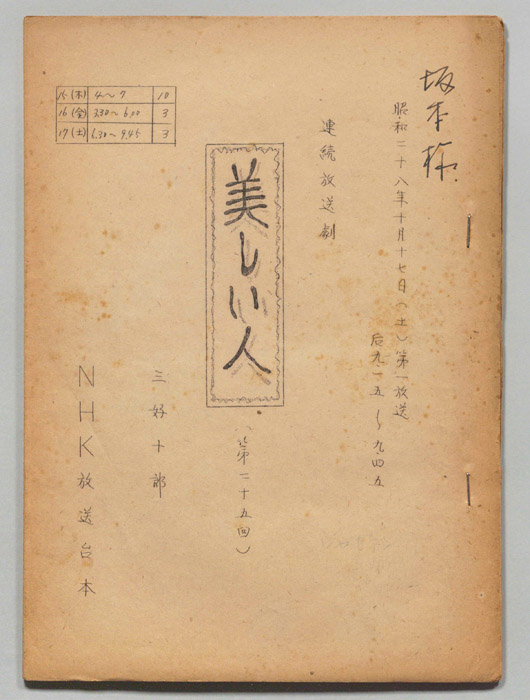 坂本様
昭和二十八年十月十七日(土)第一放送
后九・一五〜九・四五
連続放送劇
美しい人
(第二十五回)
三好十郎
NHK放送台本
15(木) 4〜7 10
16(金) 3.30〜6.00 3
17(土) 6.30〜9.45 3